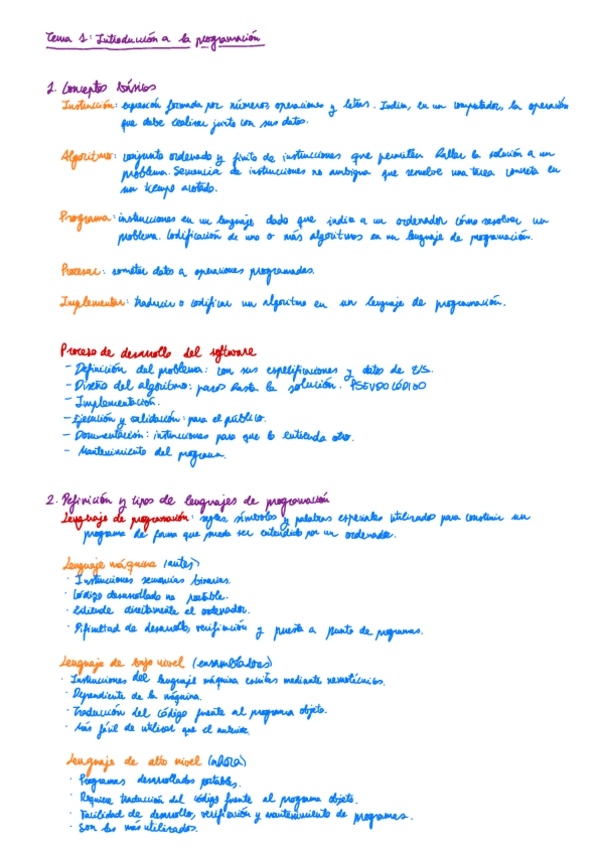 Tema 1: Introducción a la programación
1. Conceptos básicos
Instrucción: expresión formada por números, operaciones y letras. Indica, en un computador, la operación
que debe realizar junto con sus datos.
Algoritmo: conjunto ordenado y finito de instrucciones que permiten hallar la solución a un
problema. Secuencia de instrucciones no ambigua que resuelve una tarea concreta en
un tiempo acotado.
Programa: instrucciones en un lenguaje dado que indica a un ordenador cómo resolver un
problema. Codificación de uno o más algoritmos en un lenguaje de programación.
Procesar: someter datos a operaciones programadas.
Implementar: traducir o codificar un algoritmo en un lenguaje de programación.
Proceso de desarrollo del software
- Definición del problema: con sus especificaciones y datos de E/S.
- Diseño del algoritmo: pasos hasta la solución. PSEUDOCÓDIGO
- Implementación.
- Ejecución y validación: para el público.
- Documentación: instrucciones para que lo entienda otro.
- Mantenimiento del programa.
2. Definición y tipos de lenguajes de programación
Lenguaje de programación: reglas, símbolos y palabras especiales utilizados para construir un
programa de forma que pueda ser entendido por un ordenador.
Lenguaje máquina (antes)
· Instrucciones secuencias binarias.
· Código desarrollado no portable.
· Entiende directamente el ordenador.
· Dificultad de desarrollo, verificación y puesta a punto de programas.
Lenguaje de bajo nivel (ensambladores)
· Instrucciones del lenguaje máquina escritas mediante nemotécnicos.
· Dependiente de la máquina.
· Traducción del código fuente al programa objeto.
· Más fácil de utilizar que el anterior.
Lenguaje de alto nivel (ahora)
· Programas desarrollados portables.
· Requiere traducción del código fuente al programa objeto.
· Facilidad de desarrollo, verificación y mantenimiento de programas.
· Son los más utilizados.